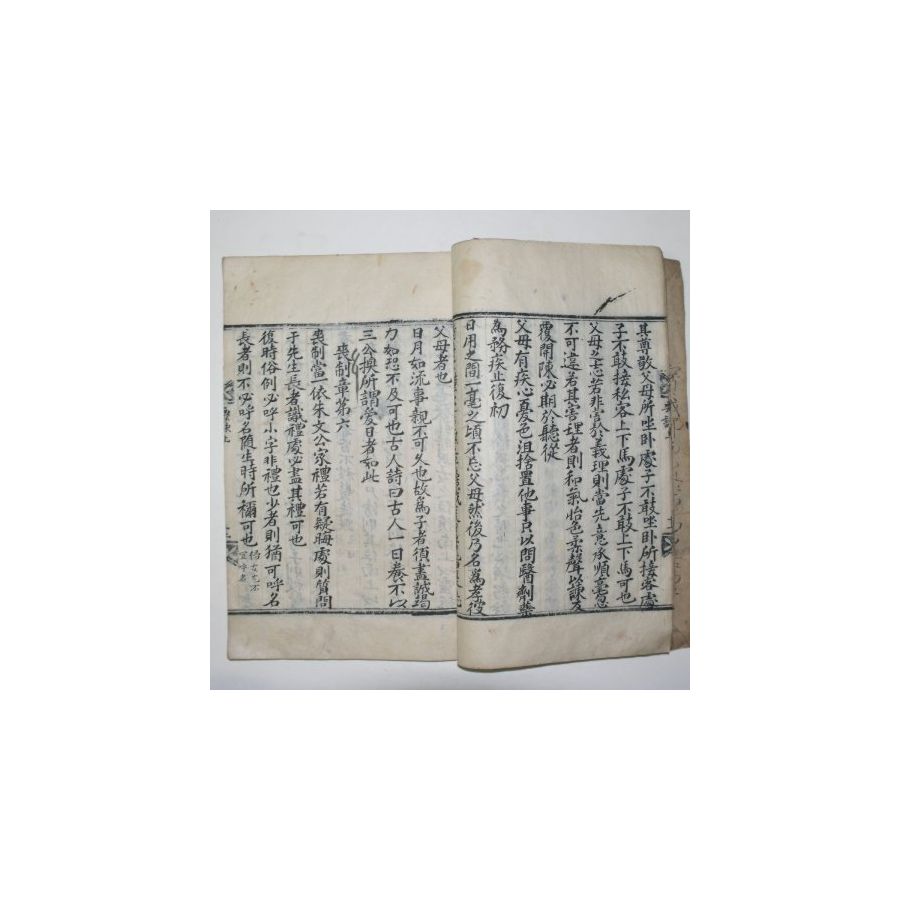 其尊敬父母所坐卧處子不敢坐卧所接客處
子不敢接私客上下馬處子不敢上下馬可也
父母之志若非害於義理則當先意承順毫忽
不可違若其害理者則和氣怡色柔聲以諫反
覆開陳必期於聽從
父母有疾心憂色沮捨置他事只以問醫劑藥
為務疾止復初
日用之間一毫之頃不忘父母然後乃名為孝彼
父母者也
日月如流事親不可久也故為子者須盡誠竭
力如恐不及可也古人詩曰古人一日養不以
三公換所謂愛日者如此
喪制章第六
喪制當一依朱文公家禮若有疑晦處則質問
于先生長者識禮處必盡其禮可也
復時俗例必呼小字非禮也少者則猶可呼名
長者則不必呼名隨生時所稱可也